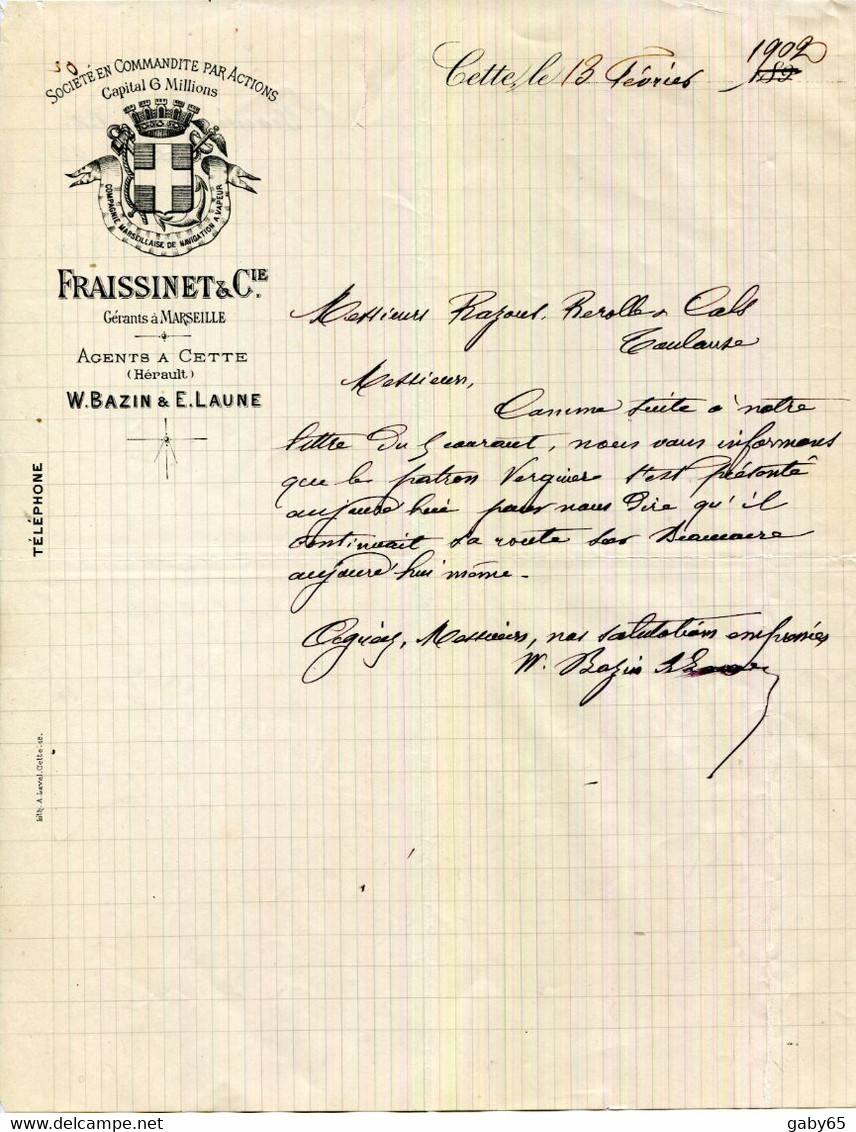 SOCIÉTÉ EN COMMANDITE PAR ACTIONS
Capital 6 Millions
COMPAGNIE MARSEILLAISE DE NAVIGATION A VAPEUR
FRAISSINET & CIE.
Gérants à MARSEILLE
AGENTS A CETTE
(Hérault)
W. BAZIN & E. LAUNE
TÉLÉPHONE
Lith. A. Laval. Cette
Cette, le 13 Février 1902
Messieurs Razous, Rerolle & Cals
Toulouse
Messieurs,
Comme suite à notre
lettre du courant, nous vous informons
que le patron s'est présenté
aujourd'hui pour nous dire qu'il
continuait sa route sur Beaucaire
aujourd'hui même.
Agréez, Messieurs, nos salutations empressées
W. Bazin
gaby65